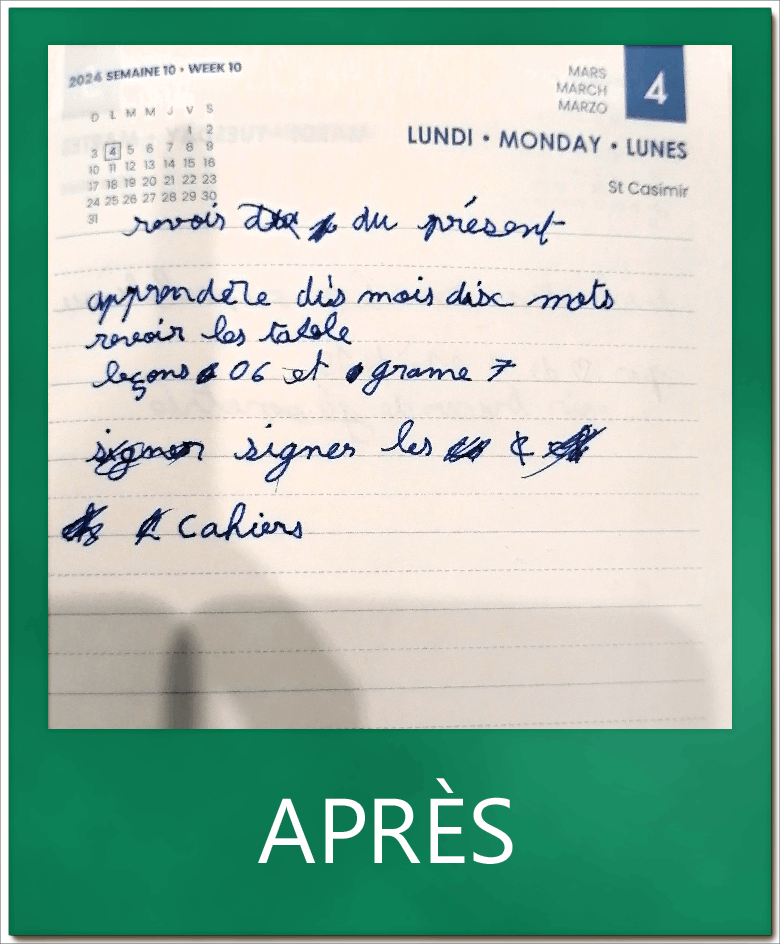 2024 SEMAINE 10 • WEEK 10
D L M M J V S
1 2
3 4 5 6 7 8 9
10 11 12 13 14 15 16
17 18 19 20 21 22 23
24 25 26 27 28 29 30
31
MARS
MARCH
MARZO
4
LUNDI • MONDAY • LUNES
St Casimir
revois du présent
apprendère dis mois disc mots
revoir les table
leçons 06 et grame 7
signer signer les
cahiers
APRÈS